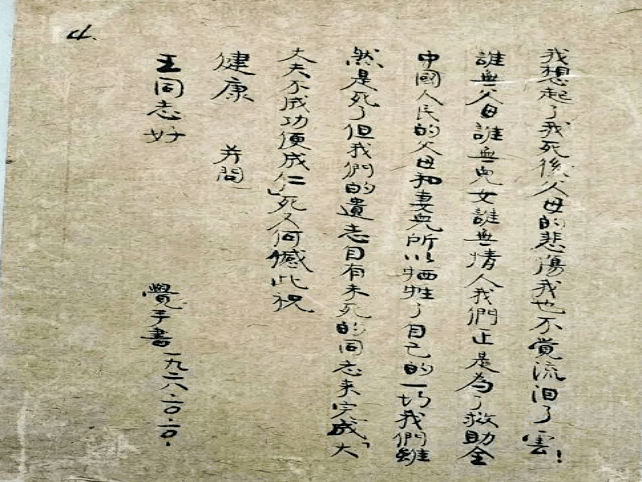 4.
我想起了我死後父母的悲傷我也不覺流泪了雲!
誰無父母誰無兒女誰無情人我們正是為了救助全
中國人民的父母和妻兒所以牺牲了自己的一切我們雖
然是死了但我們的遺志自有未死的同志来完成「大
丈夫不成功便成仁」死又何憾此祝
健康 并問
王同志好
覺手書 一九二八.